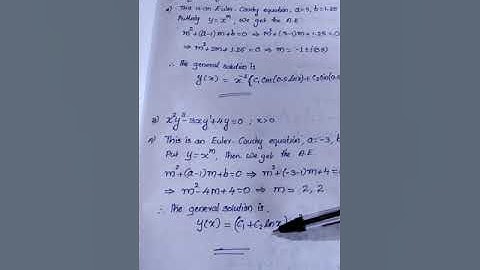 A) This is an Euler-Cauchy equation, a=3, b=1.25
Putting y=x^m, we get the A.E
m²+(a-1)m+b=0 ⇒ m²+(3-1)m+1.25=0
⇒ m²+2m+1.25=0 ⇒ m=-1±i(0.5)
∴ The general solution is
y(x) = x^-1 {C₁ Cos(0.5 lnx)+C₂ Sin(0.
3) x²y"-3xy'+4y=0 ; x>0
A) This is an Euler-Cauchy equation, a=-3, b
Put y=x^m, then we get the A.E.
m²+(a-1)m+b=0 ⇒ m²+(-3-1)m+4=
⇒ m²-4m+4=0 ⇒ m= 2,2
∴ The general solution is,
y(x) = (C₁+C₂lnx)